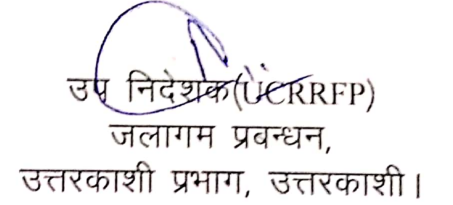 उप निदेशक(UCRRFP)
जलागम प्रबन्धन,
उत्तरकाशी प्रभाग, उत्तरकाशी।